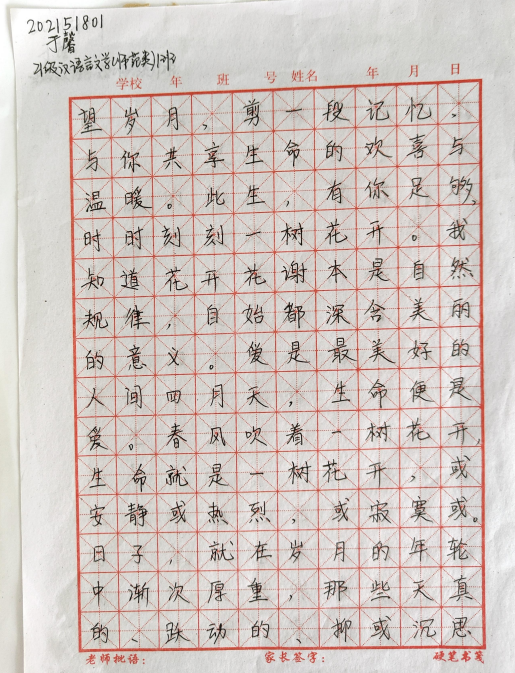 202151801
于馨
21级汉语言文学(师范类)1班
学校 年 班 号 姓名 年 月 日
望岁月，剪一段记忆，
与你共享生命的欢喜与
温暖。此生，有你足够，
时时刻刻一树花开。我
知道花开花谢本是自然
规律，自始都深含美丽
的意义。爱是最美好的
人间四月天，生命便是
爱。春风吹着一树花开，
生命就是一树花开，或
安静或热烈，或寂寞或。
日子，就在岁月的年轮
中渐次厚重，那些天真
的、跃动的、抑或沉思
老师批语： 家长签字： 硬笔书笺